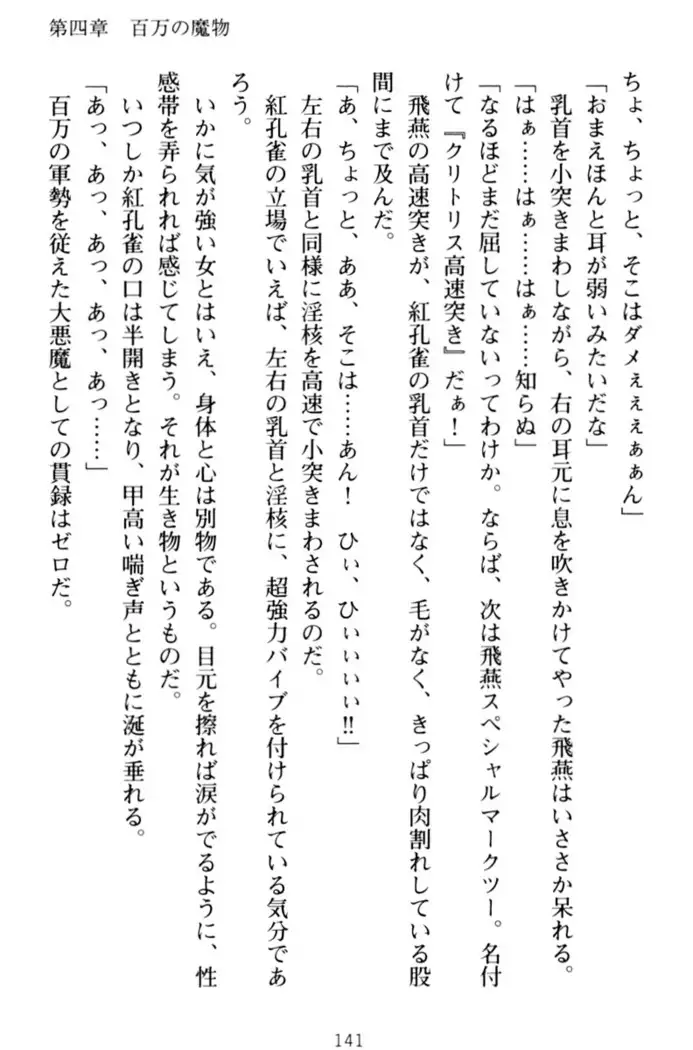 第四章　百万の魔物
ちょ、ちょっと、そこはダメぇぇぇぁぁん」
「おまえほんと耳が弱いみたいだな」
　乳首を小突きまわしながら、右の耳元に息を吹きかけてやった飛燕はいささか呆れる。
「はぁ……はぁ……はぁ……知らぬ」
「なるほどまだ屈していないってわけか。ならば、次は飛燕スペシャルマークツー。名付
けて『クリトリス高速突き』だぁ！」
　飛燕の高速突きが、紅孔雀の乳首だけではなく、毛がなく、きっぱり肉割れしている股
間にまで及んだ。
「あ、ちょっと、ああ、そこは……あん！　ひぃ、ひぃぃぃぃ!!」
　左右の乳首と同様に淫核を高速で小突きまわされるのだ。
　紅孔雀の立場でいえば、左右の乳首と淫核に、超強力バイブを付けられている気分であ
ろう。
　いかに気が強い女とはいえ、身体と心は別物である。目元を擦れば涙がでるように、性
感帯を弄られれば感じてしまう。それが生き物というものだ。
　いつしか紅孔雀の口は半開きとなり、甲高い喘ぎ声とともに涎が垂れる。
「あっ、あっ、あっ、あっ、あっ……」
　百万の軍勢を従えた大悪魔としての貫録はゼロだ。
141